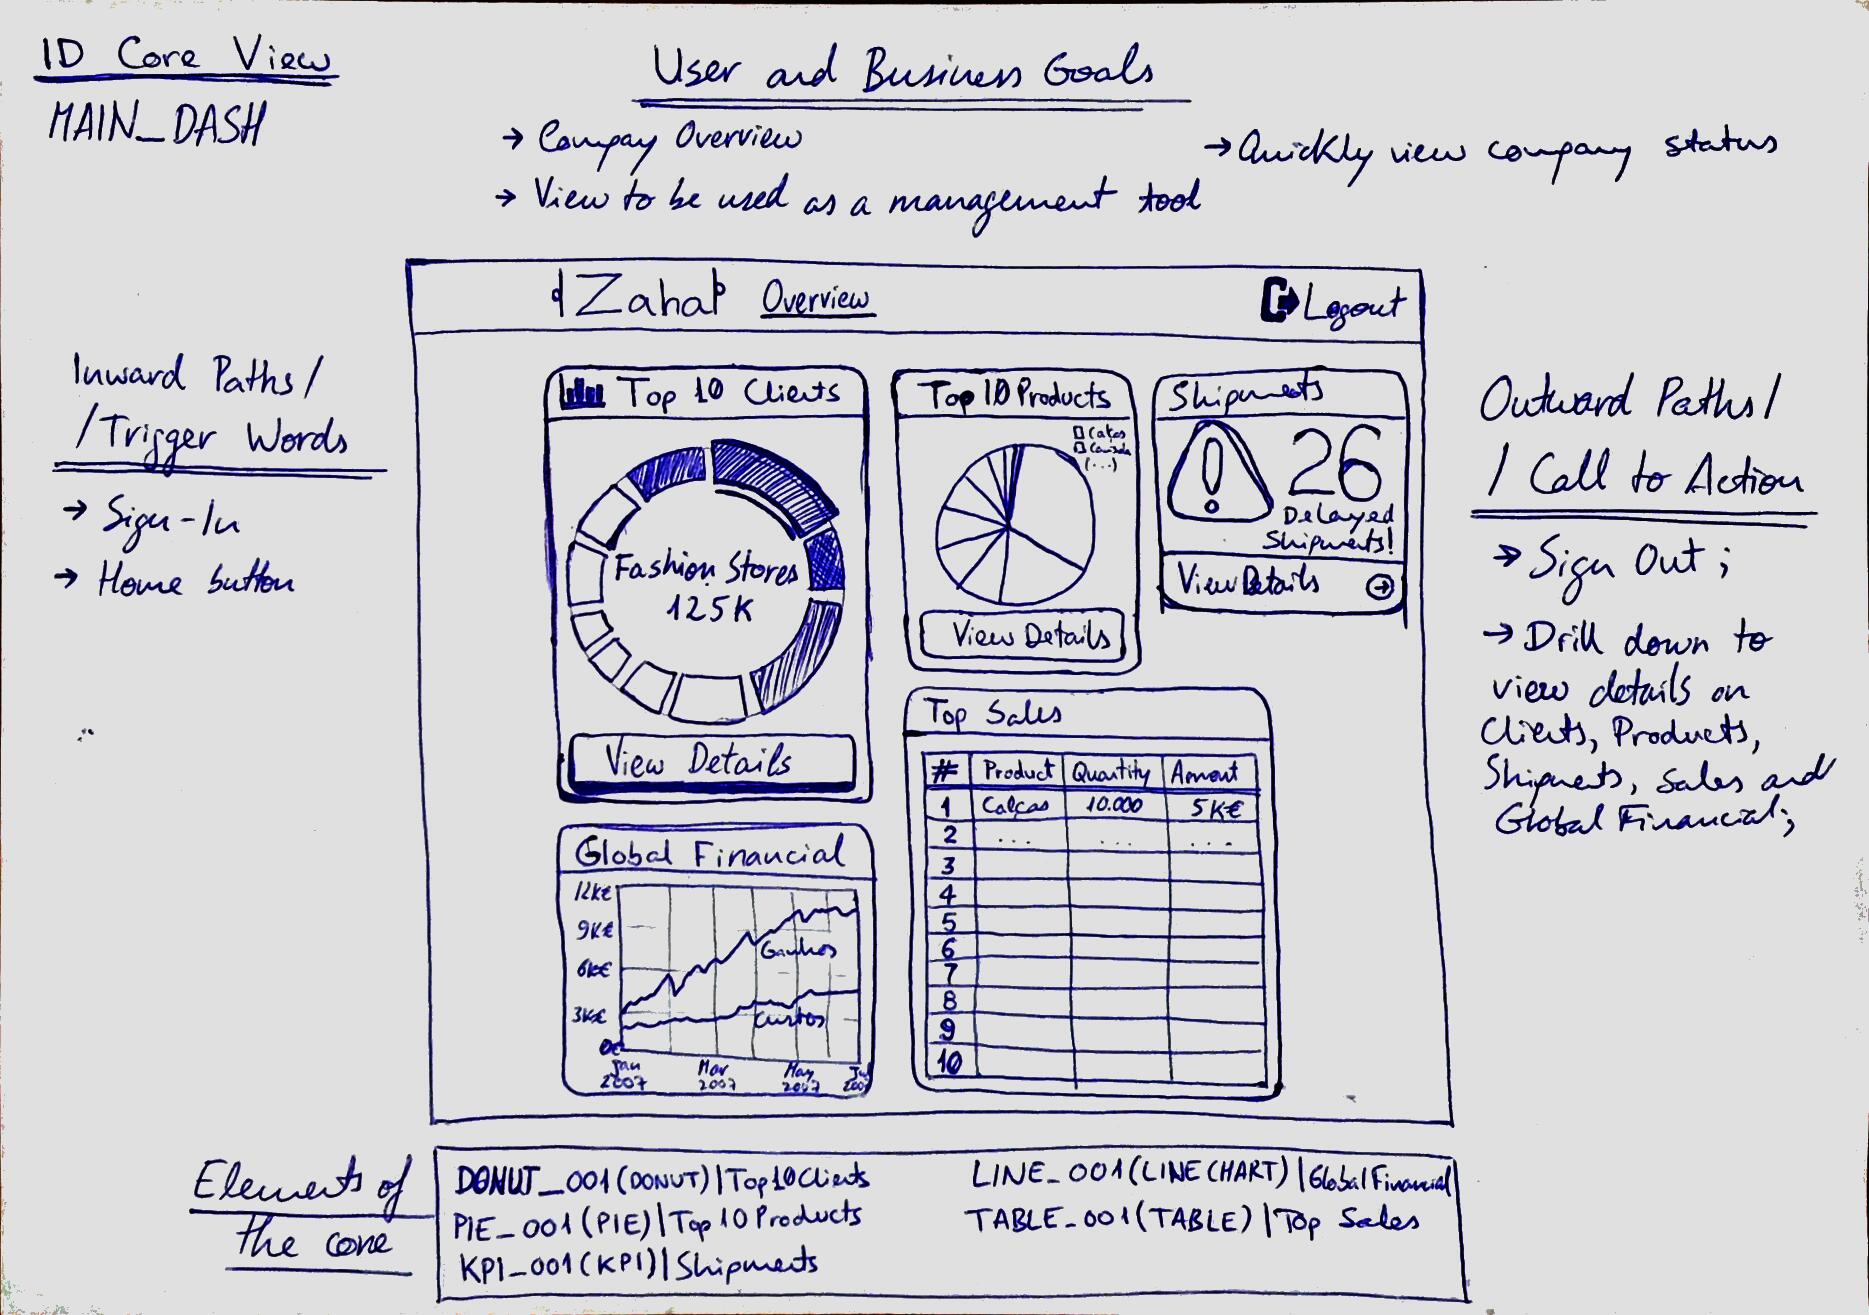 ID Core View
MAIN_DASH
User and Business Goals
→ Compay Overview
→ Quickly view company status
→ View to be used as a management tool
Inward Paths/
/Trigger Words
→ Sign-In
→ Home button
Zaha
Overview
Logout
Top 10 Clients
Fashion Stores
125K
View Details
Top 10 Products
(...)
View Details
Shipments
!
26
Delayed
Shipments!
View Details →
Global Financial
12K€
9K€
6K€
3K€
0€
Ganhos
Custos
Jan 2007
Mar 2007
May 2007
Jul 2007
Top Sales
# Product Quantity Amount
1 Calças 10.000 5K€
2 ... ... ...
3
4
5
6
7
8
9
10
Outward Paths/
/ Call to Action
→ Sign Out;
→ Drill down to
view details on
Clients, Products,
Shipments, Sales and
Global Financial;
Elements of
the core
DONUT_001(DONUT)|Top10Clients
PIE_001(PIE)|Top 10 Products
KPI_001(KPI)|Shipments
LINE_001(LINECHART)|Global Financial
TABLE_001(TABLE)|Top Sales